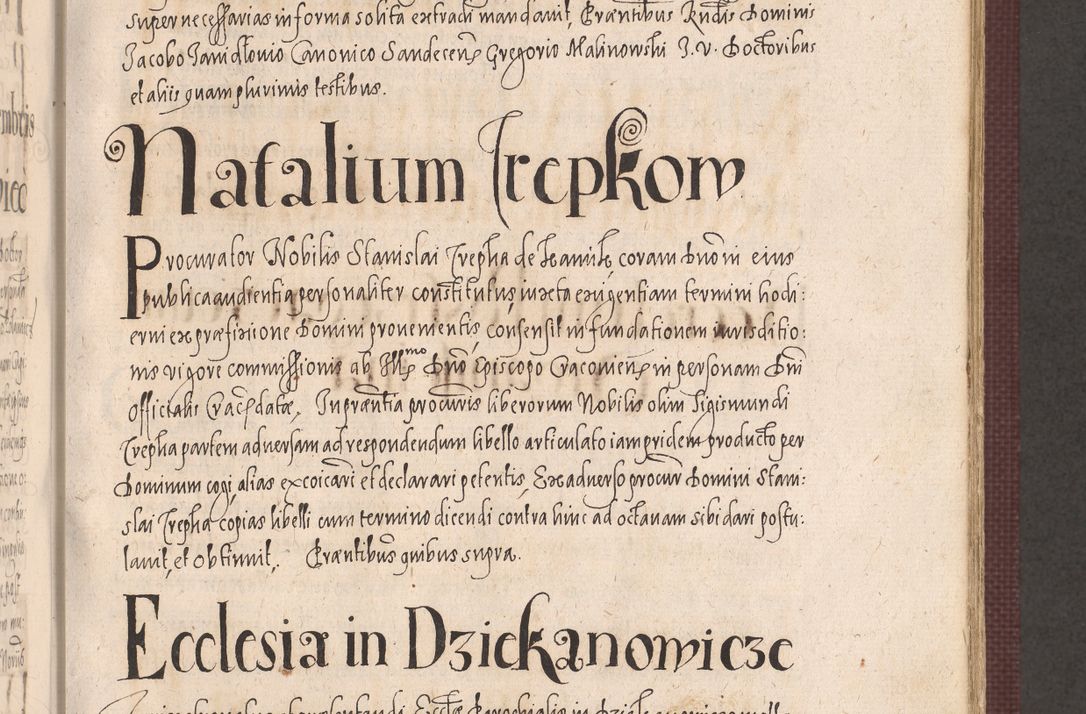 super necessarias in forma solita extradi mandavit, Præntibus Rndis Dominis
Jacobo Janidlovio Canonico Sandecens Gregorio Malinowski J. V. Doctoribus
et aliis quam plurimis testibus.
Natalium Trepkow
Procurator Nobilis Stanislai Trepka de coram Dno in eius
publica audientia personaliter constitutus, iuxta exigentiam termini hodi:
erni ex præfixione Domini provenientis, consensit in fundationem iurisditio:
nis vigore commissionis ab Illmo Dno Episcopo Cracoviens in personam Dni
Officialis Crac datæ, In præntia procuris liberorum Nobilis olim Sigismundi
Trepka partem adversam ad respondendum libello articulato iampridem producto per
Dominum cogi, alias excoicari et declarari petentis, Ex adverso procur Domini Stani:
slai Trepka copias libelli cum termino dicendi contra hinc ad octavam sibi dari postu:
lavit, et obtinuit, Præntibus quibus supra.
Ecclesia in Dziekanowicze